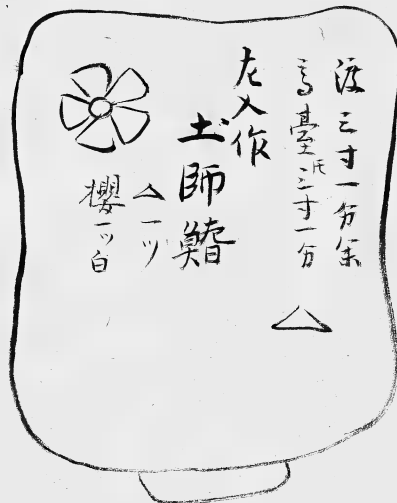 渡三寸一分余
高臺三寸一分
左入作
土師
△一ツ
櫻一ツ白